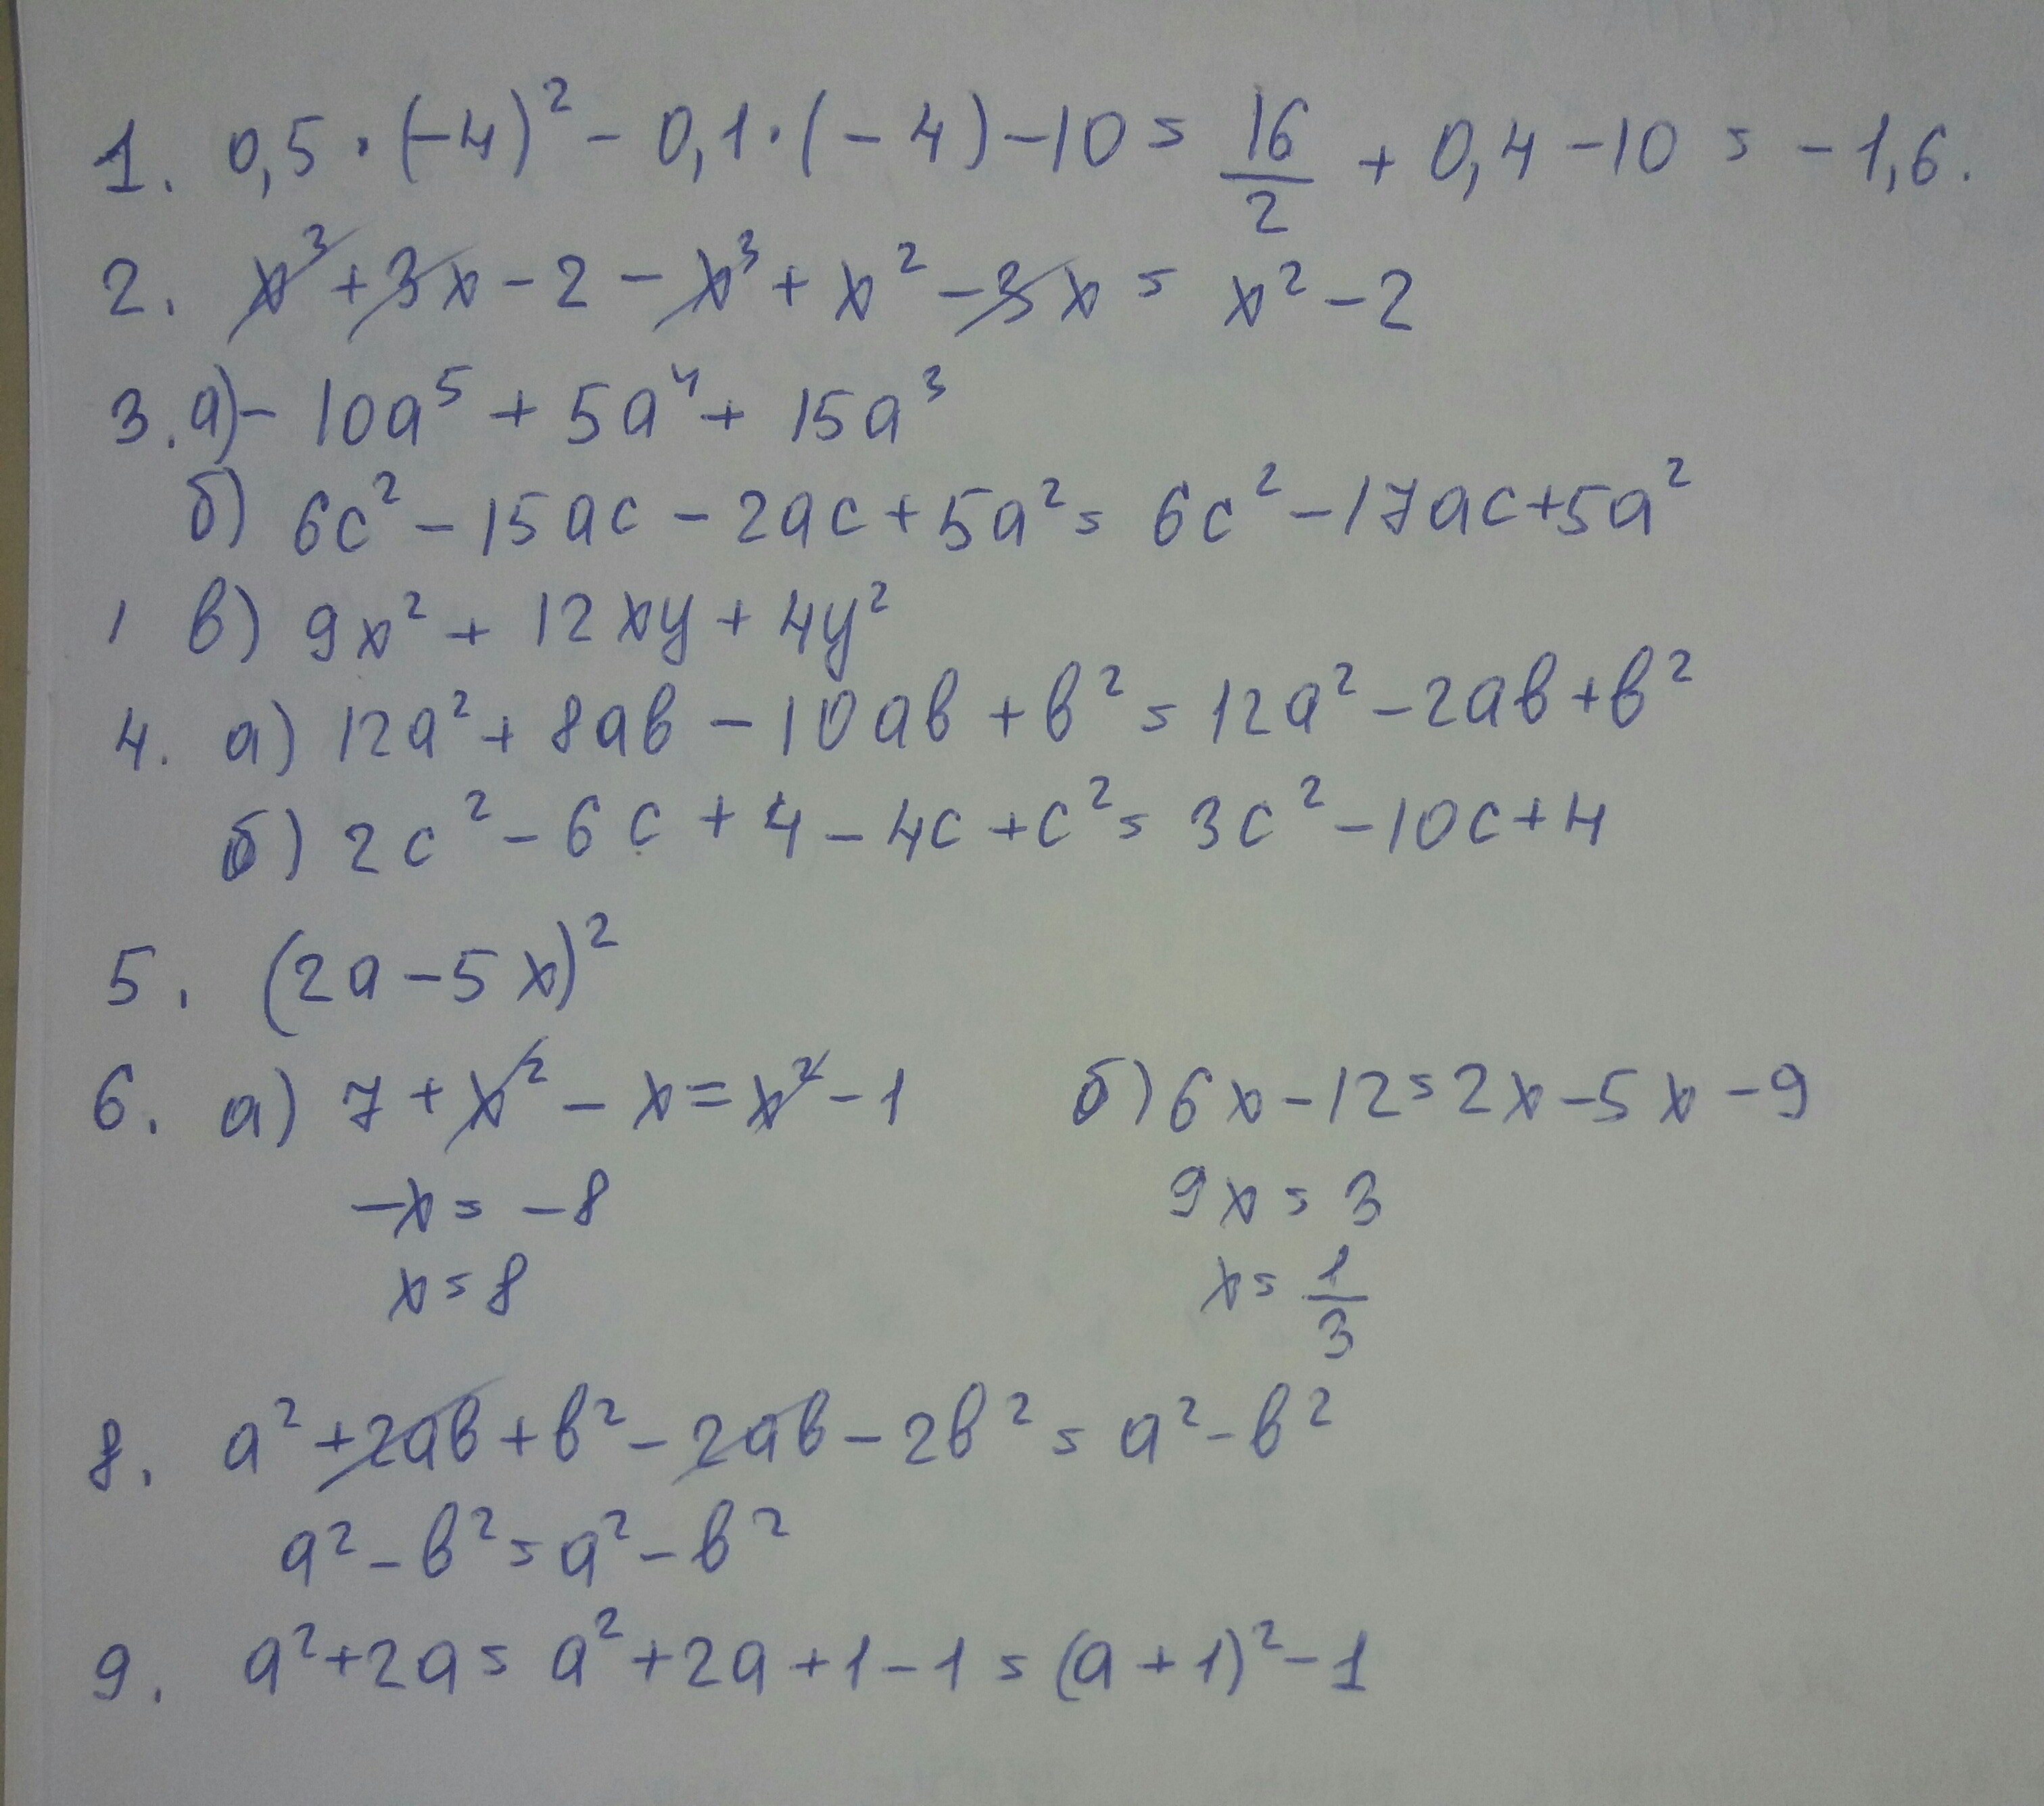 1. 0,5 · (-4)² - 0,1 · (-4) - 10 = 16/2 + 0,4 - 10 = -1,6.
2. x³ + 3x - 2 - x³ + x² - 3x = x² - 2
3. а) - 10a⁵ + 5a⁴ + 15a³
б) 6c² - 15ac - 2ac + 5a² = 6c² - 17ac + 5a²
в) 9x² + 12xy + 4y²
4. а) 12a² + 8ab - 10ab + b² = 12a² - 2ab + b²
б) 2c² - 6c + 4 - 4c + c² = 3c² - 10c + 4
5. (2a - 5x)²
6. а) 7 + x² - x = x² - 1 б) 6x - 12 = 2x - 5x - 9
-x = -8 9x = 3
x = 8 x = 1/3
8. a² + 2ab + b² - 2ab - 2b² = a² - b²
a² - b² = a² - b²
9. a² + 2a = a² + 2a + 1 - 1 = (a + 1)² - 1